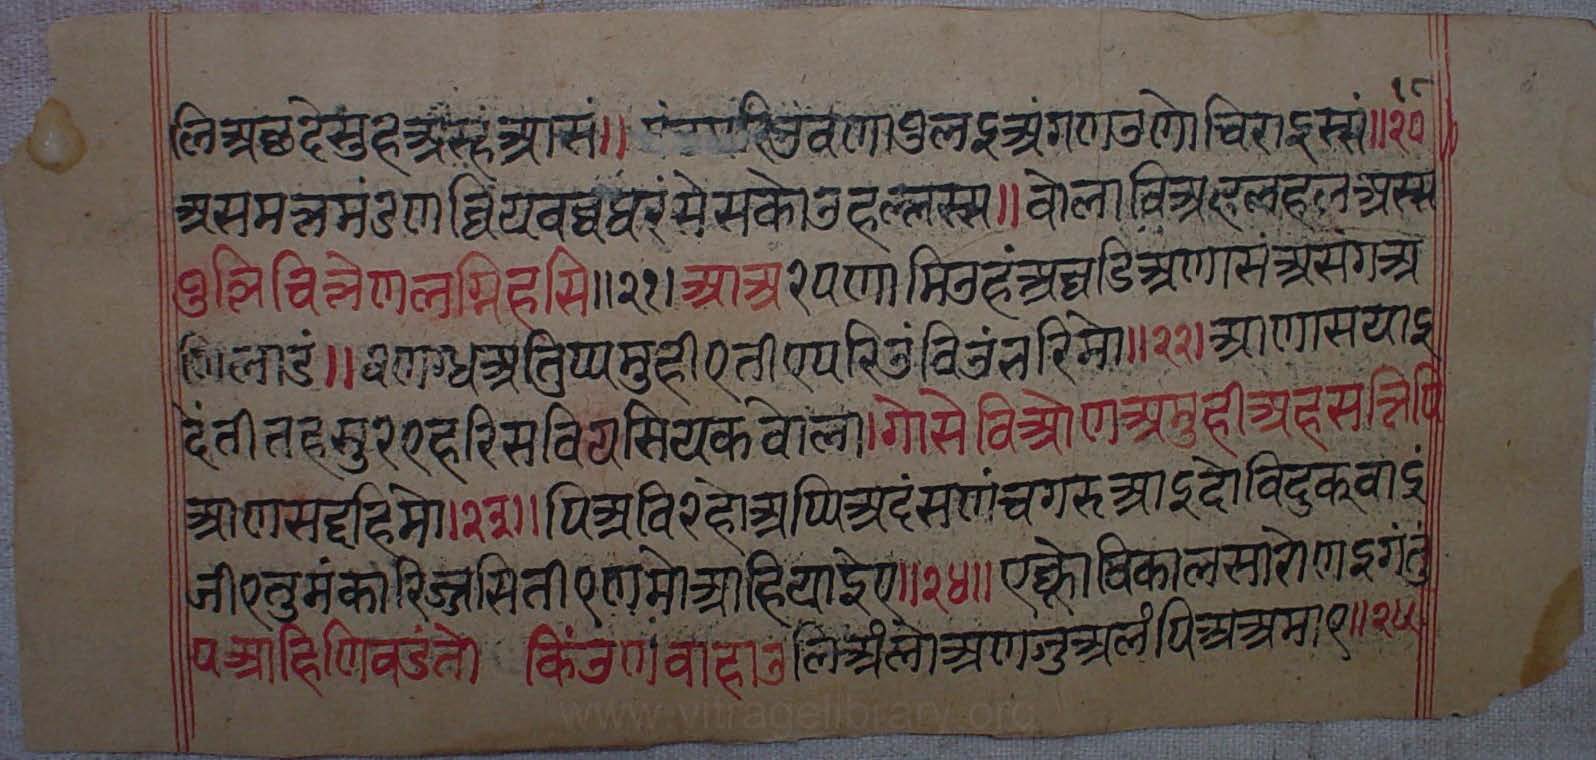 १८
लिअच्छदेसुहअस्हंआसं॥ रिउंवणाउलइअंगणउणोचिराइस्सं॥२०
असमत्तमंडणाच्चियवच्चघरंसेसकोउहल्लस्स॥वोलाविअहलहलअस्स
पुत्तिचित्तेणलग्गिहसि॥२१।आअरपणामिउहंअघडिअणासंअसंगअ
णिलाडं॥वणग्घअतुप्पमुहीएतीएपरिउंविउंतरिमो॥२२।आणासयाइ
देंतीतहसुरएहरिसविअसियकवोला।गोसेविओणअमुहीअहसत्तिपि
आणसद्दहिमो॥२३॥पिअविरहोअप्पिअदंसणंचगरुआइदोविदुक्वाइं
जीएतुमंकारिज्जसितीएणमोआहियाईए॥२४॥एक्कोविकालसारोणइगंतुं
पआहिणवडंतो किंउणवाहाउलिअंलोअणजुअलंपिअअमाए॥२५
www.vitragelibrary.org